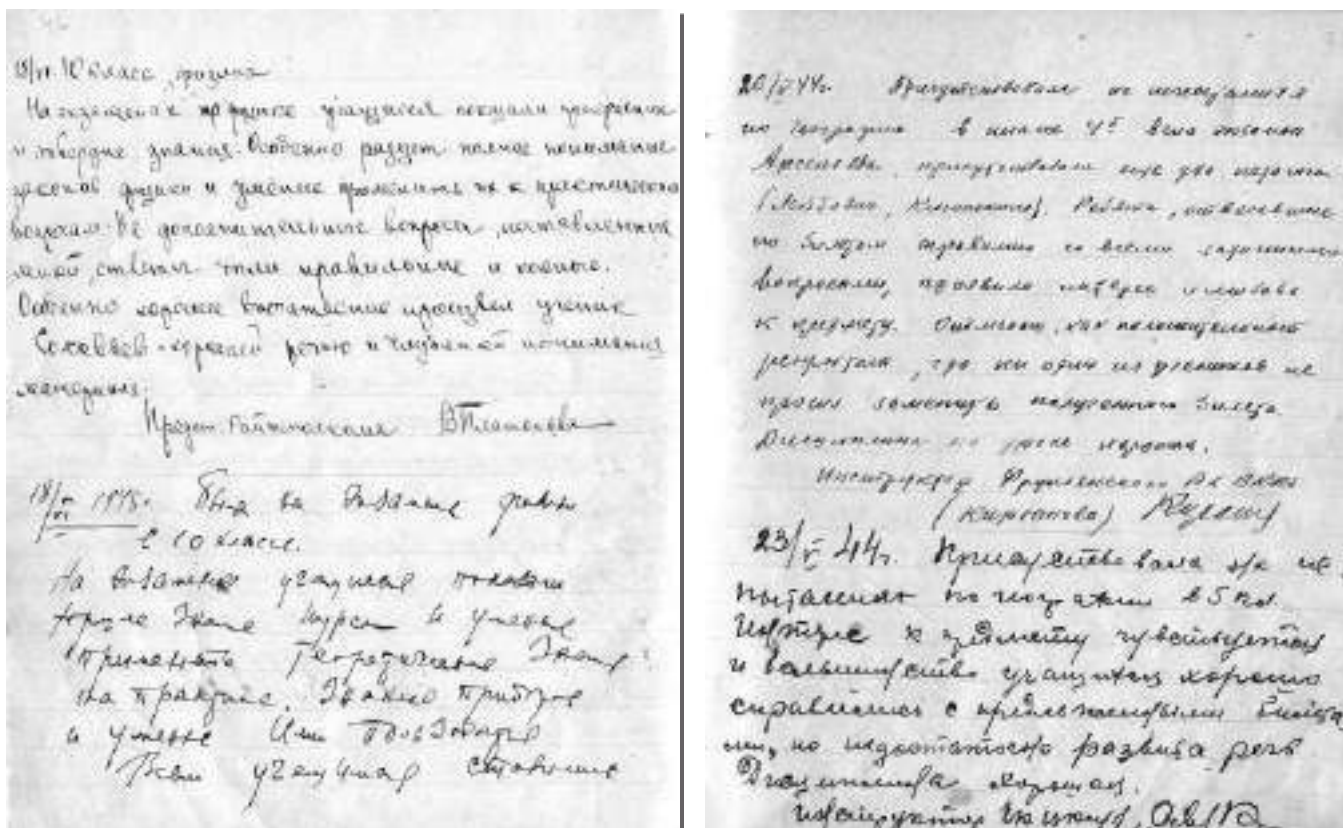 18/VI. 10 класс, физика
На экзаменах по физике учащиеся показали прекрасные
и твердые знания. Особенно радует полное понимание
законов физики и умение применить их к практическим
вопросам. На дополнительные вопросы, поставленные
мной, ответы были правильные и полные.
Особенно хорошее впечатление произвел ученик
Соловьев - хорошей речью и глубиной понимания
материала.
Предст.
18/VI 1945г. Был на экзамене физики
в 10 классе.
На экзамене учащиеся показали
хорошие знание курса и умение
применять теоретические знания
на практике. Знание приборов
и умение ими пользоваться
Всем учащимся
20/V 44г. Присутствовала на испытаниях
по географии в классе 4
Арсеньева, присутствовали еще два
Ребята, отвечавшие
по билетам справились со всеми
вопросами, проявили интерес и любовь
к предмету. Отмечаю, как положительный
результат, где ни один из учеников не
просил заменить полученного билета.
Дисциплина на уроке хорошая.
Инструктор Фрунзенского РК ВЛКСМ
23/V 44г. Присутствовала на ис-
пытаниях по географии в 5 кл.
Интерес к предмету чувствуется
и большинство учащихся хорошо
справились с предложенными билета-
ми, но недостаточно развита речь
Дисциплина хорошая.
Инструктор